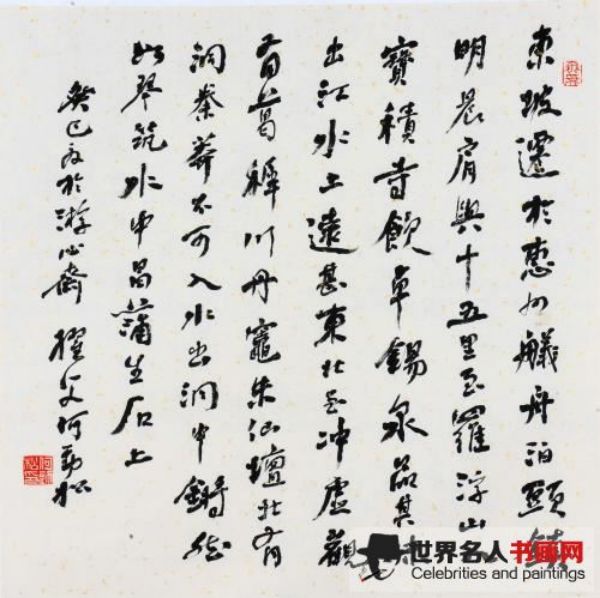 東坡遷於惠州艤舟泊頭鎮
明晨肩輿十五里至羅浮山入
寶積寺飲卓錫泉品其味
出江水上遠甚東北至沖虛觀
有葛稚川丹竈朱仙壇北有
洞榛莽不可入水出洞中鏘然
如琴筑水中菖蒲生石上
癸巳夏於游心齋 父何勁松
世界名人书画网
Celebrities and paintings